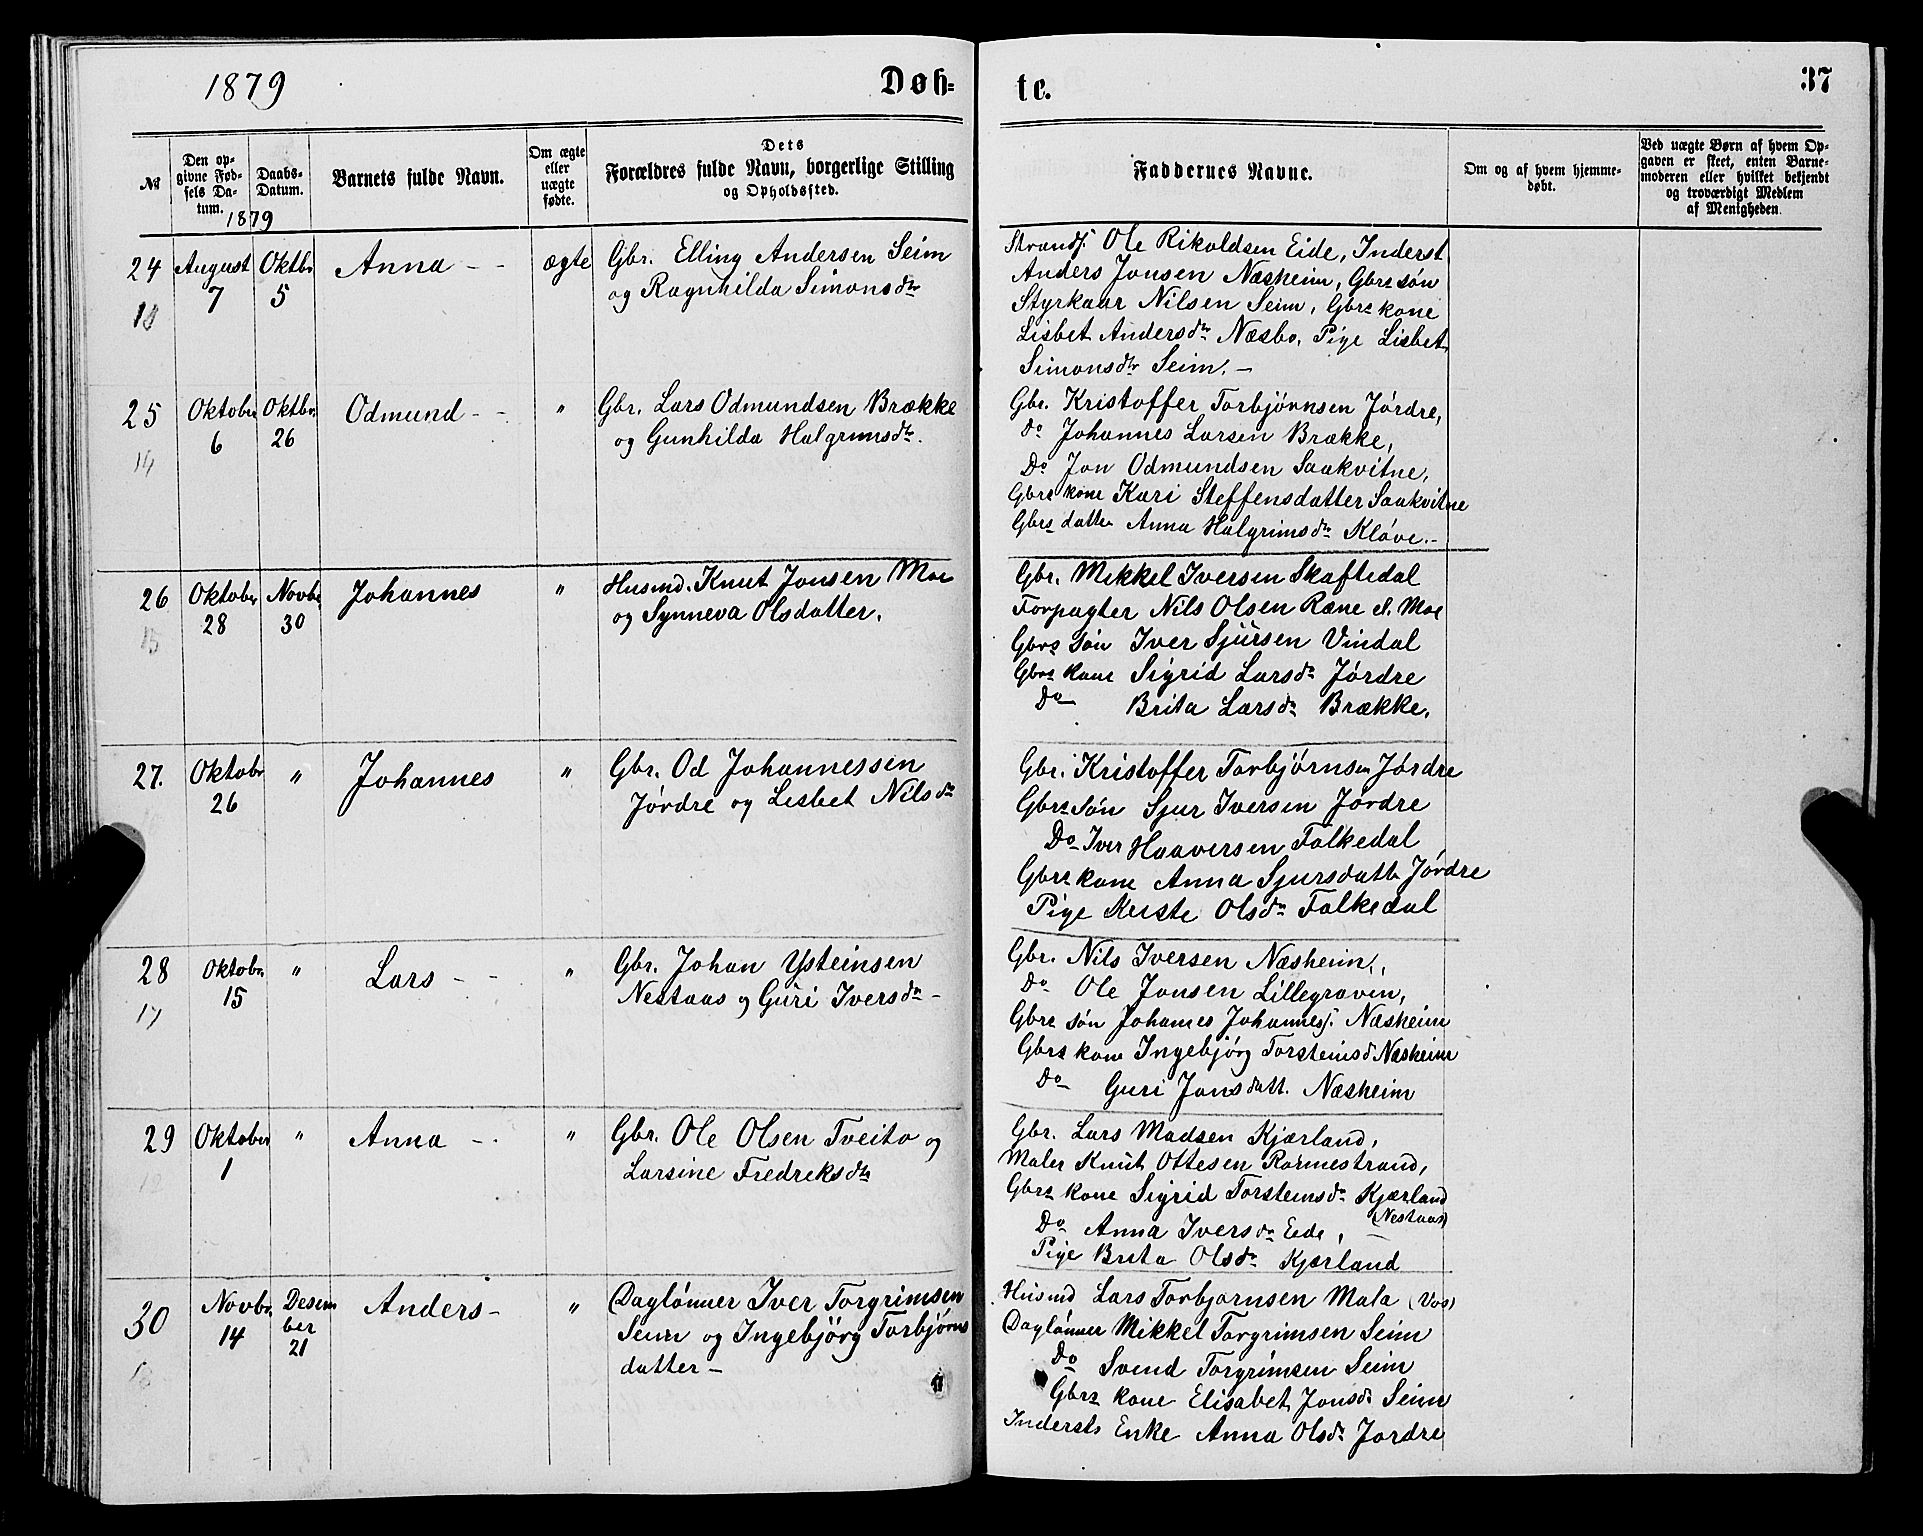 1879
Døb-
te.
37
№
Den op-
givne Fød-
sels Da-
tum.
1879
Daabs-
Datum.
Barnets fulde Navn.
Om ægte
eller
uægte
fødte.
Dets
Forældres fulde Navn, borgerlige Stilling
og Opholdssted.
Faddernes Navne.
Om og af hvem hjemme-
døbt.
Ved uægte Børn af hvem Op-
gaven er skeet, enten Barne-
moderen eller hvilket bekjendt
og troværdigt Medlem
af Menigheden.
24 August 7 Oktbr 5 Anna - - ægte
Gbr. Elling Andersen Seim
og Ragnhilda Simonsdtr
Strands. Ole Rikoldsen Eide, Inderst
Anders Jonsen Næsheim, Gbrs søn
Styrkaar Nilsen Seim, Gbrs kone
Lisbet Andersdtr Næsbo, Pige Lisbet
Simonsdtr Seim. -
25 Oktober 6 Oktbr. 26 Odmund - - "
14
Gbr. Lars Odmundsen Brække
og Gunhilda Halgrimsdtr.
Gbr. Kristoffer Torbjørnsen Jørdre,
Do Johannes Larsen Brække,
Do Jon Odmundsen Saakvitne,
Gbrs kone Kari Steffensdatter Saakvitne
Gbrs datter Anna Halgrimsdtr Kløve. -
26 Oktober 28 Novbr 30 Johannes "
15
Husmd. Knut Jonsen Moe
og Synneva Olsdatter.
Gbr. Mikkel Iversen Skaftedal
Forpagter Nils Olsen Ræne el. Moe
Gbrs søn Iver Sjursen Vindal
Gbrs kone Sigrid Larsdr Jørdre
Do Brita Larsdr Brække.
27. Oktobr 26 " Johannes "
Gbr. Od Johannessen
Jørdre og Lisbet Nilsdr
Gbr. Kristoffer Torbjørnsen Jørdre
Gbrs søn Sjur Iversen Jørdre
Do Iver Haaversen Folkedal
Gbrs kone Anna Sjursdatter Jørdre
Pige Olsdr Folkedal
28 Oktobr. 15 " Lars - - "
17
Gbr. Johan Ysteinsen
Nestaas og Guri Iversdr -
Gbr. Nils Iversen Næsheim,
Do Ole Jonsen Lillegraven,
Gbrs søn Johannes Johanness. Næsheim
Gbrs kone Ingebjørg Torsteinsd. Næsheim
Do Guri Jonsdatt. Næsheim
29 Oktober 1 " Anna - . "
Gbr. Ole Olsen Tveito og
Larsine Fredreksdtr
Gbr. Lars Madsen Kjærland,
Maler Knut Ottesen Ræmestrand,
Gbrs kone Sigrid Torsteinsdr Kjærland
Do Anna Iversdr Eide, (Nestaas)
Pige Brita Olsdr Kjærland
30 Novbr. 14 Desem
ber
21 Anders - "
Daglønner Iver Torgrimsen
Seim og Ingebjørg Torbjørns
datter -
Husmd Lars Torbjørnsen Mala (Vos)
Daglønner Mikkel Torgrimsen Seim
Do Svend Torgrimsen Seim
Gbrs kone Elisabet Jonsdr Seim
Indersts Enke Anna Olsdr Jørdre